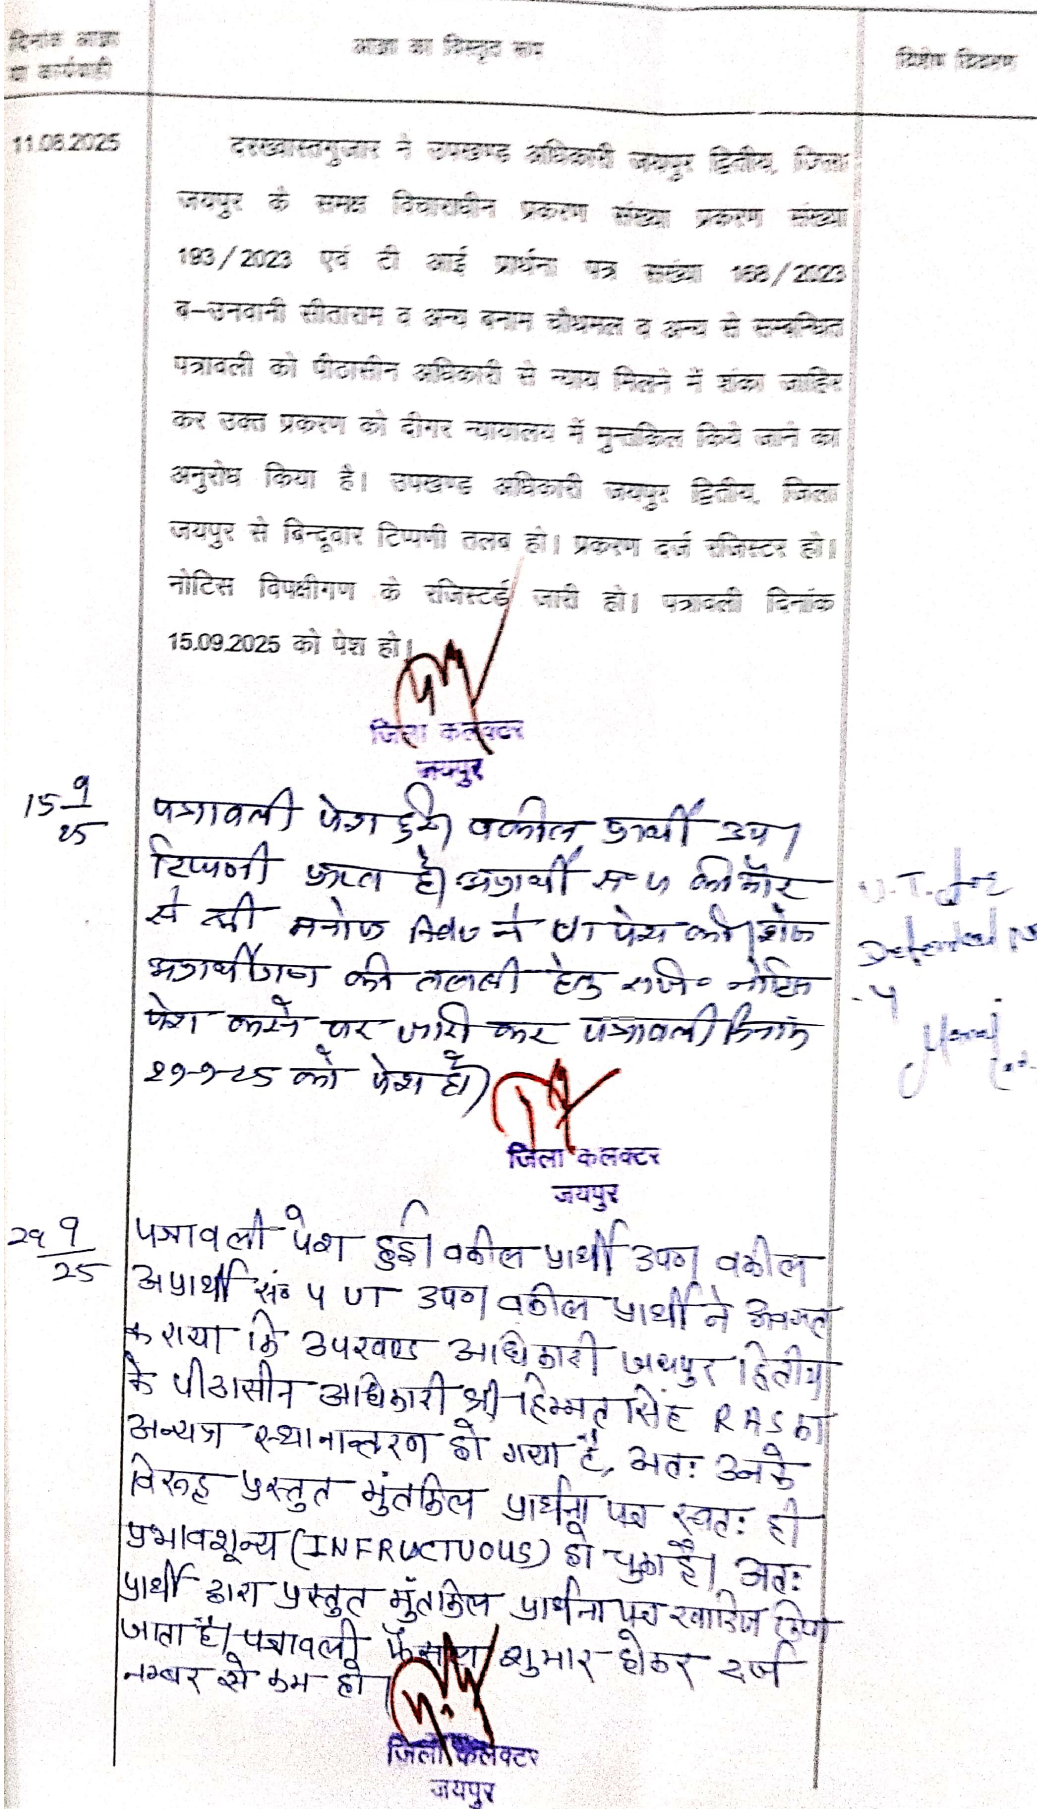 दिनांक आज्ञा
या कार्यवाही
आज्ञा का विस्तृत रूप
विशेष विवरण
11.08.2025
दरख्वास्तगुजार ने उपखण्ड अधिकारी जयपुर द्वितीय, जिला
जयपुर के समक्ष विचाराधीन प्रकरण संख्या प्रकरण संख्या
193/2023 एवं टी आई प्रार्थना पत्र संख्या 168/2023
ब–उनवानी सीताराम व अन्य बनाम चौथमल व अन्य से सम्बन्धित
पत्रावली को पीठासीन अधिकारी से न्याय मिलने में शंका जाहिर
कर उक्त प्रकरण को दीगर न्यायालय में मुन्तकिल किये जाने का
अनुरोध किया है। उपखण्ड अधिकारी जयपुर द्वितीय, जिला
जयपुर से बिन्दूवार टिप्पणी तलब हो। प्रकरण दर्ज रजिस्टर हो।
नोटिस विपक्षीगण के रजिस्टर्ड जारी हो। पत्रावली दिनांक
15.09.2025 को पेश हो।
जिला कलक्टर
जयपुर
15 9/25
पत्रावली पेश हुई। वकील प्रार्थी उप।
टिप्पणी प्राप्त है। अप्रार्थी सं 4 की ओर
से श्री मनोज Adv ने UT पेश की। शेष
अप्रार्थीगण की तलबी हेतु रजि० नोटिस
पेश करने पर जारी कर पत्रावली दिनांक
29-9-25 को पेश हो।
U.T. for
Defendant No
- 4
Manoj
जिला कलक्टर
जयपुर
29 9/25
पत्रावली पेश हुई। वकील प्रार्थी उप० वकील
अप्रार्थी सं० 4 UT उप० वकील प्रार्थी ने अवगत
कराया कि उपखण्ड अधिकारी जयपुर द्वितीय
के पीठासीन अधिकारी श्री हिम्मत सिंह RAS का
अन्यत्र स्थानान्तरण हो गया है, अतः उनके
विरूद्ध प्रस्तुत मुंतकिल प्रार्थना पत्र स्वतः ही
प्रभावशून्य (INFRUCTUOUS) हो चुका है। अतः
प्रार्थी द्वारा प्रस्तुत मुंतकिल प्रार्थना पत्र खारिज किया
जाता है। पत्रावली फैसल शुमार होकर दर्ज
नम्बर से कम हो।
जिला कलक्टर
जयपुर